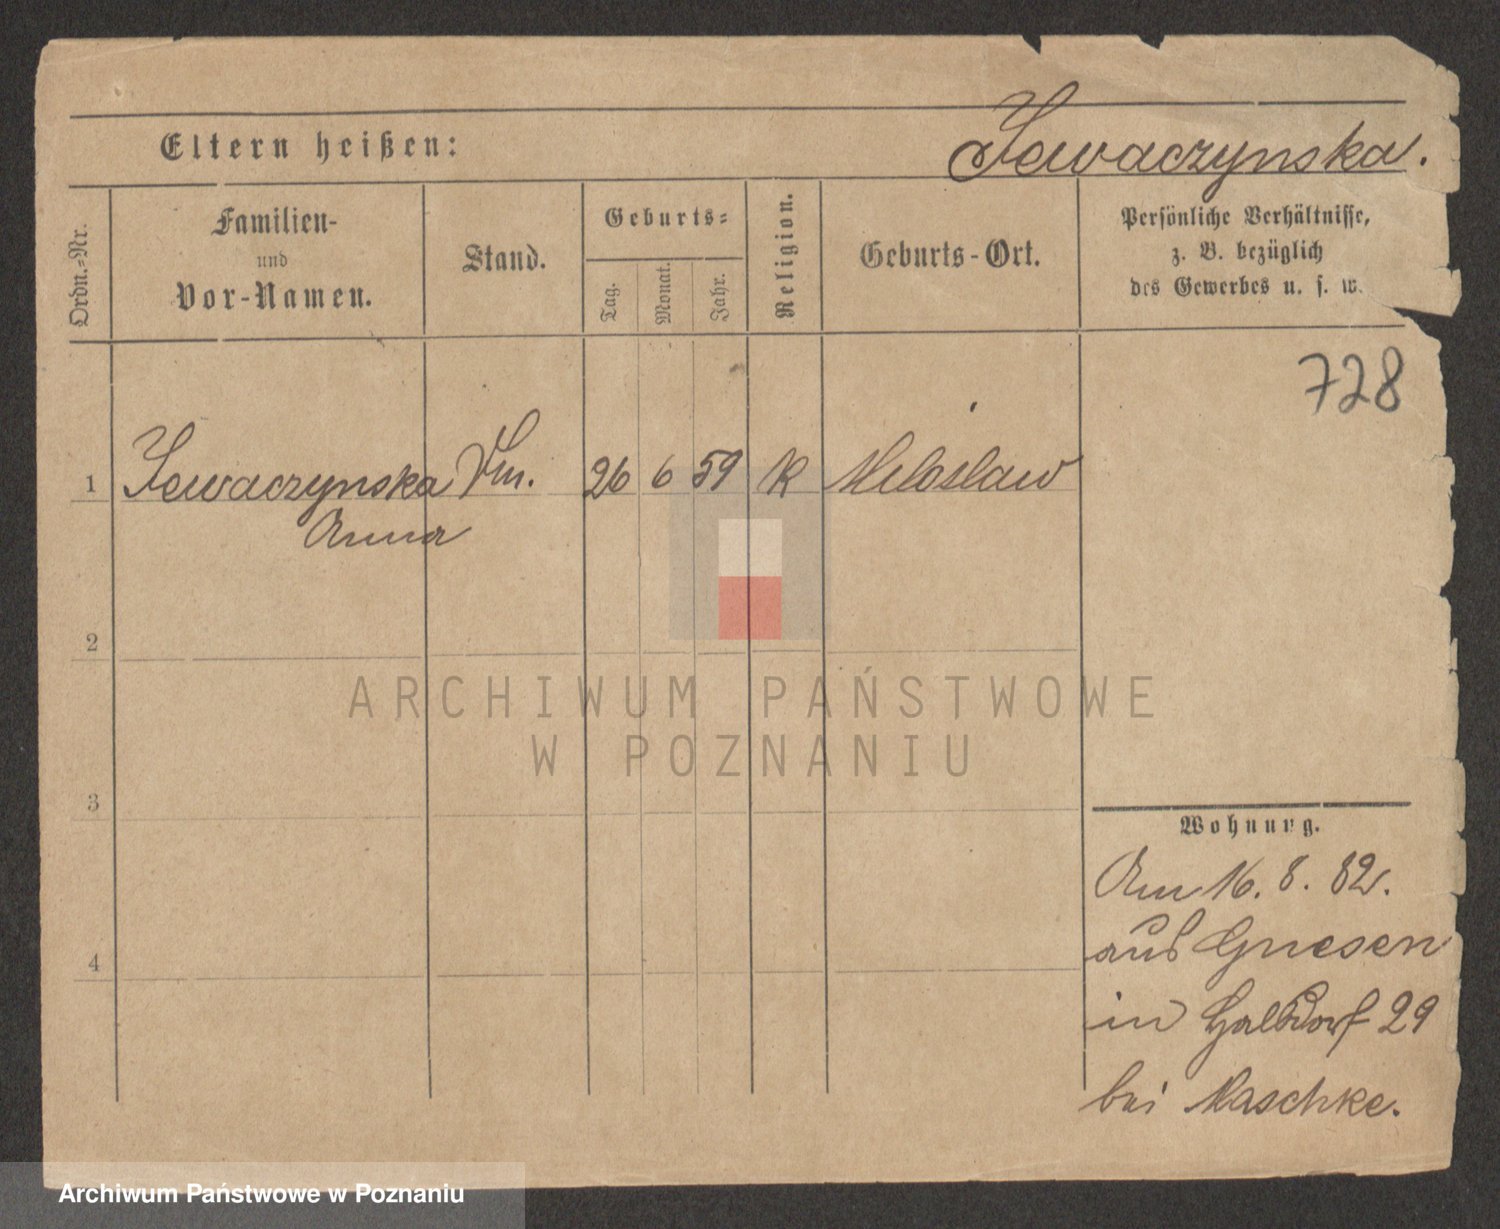 Eltern heißen: Jewaczynska.
Ordn.-Nr.
Familien-
und
Vor-Namen.
Stand.
Geburts-
Tag.
Monat.
Jahr.
Religion.
Geburts-Ort.
Persönliche Verhältnisse,
z. B. bezüglich
des Gewerbes u. s. w.
728
1 Jewaczynska 26 6 59 K Miloslaw
Anna
2
3
4
Wohnung.
Am 16. 8. 82.
aus Gnesen
in Halbdorf 29
bei Maschke.
ARCHIWUM PAŃSTWOWE
W POZNANIU
Archiwum Państwowe w Poznaniu